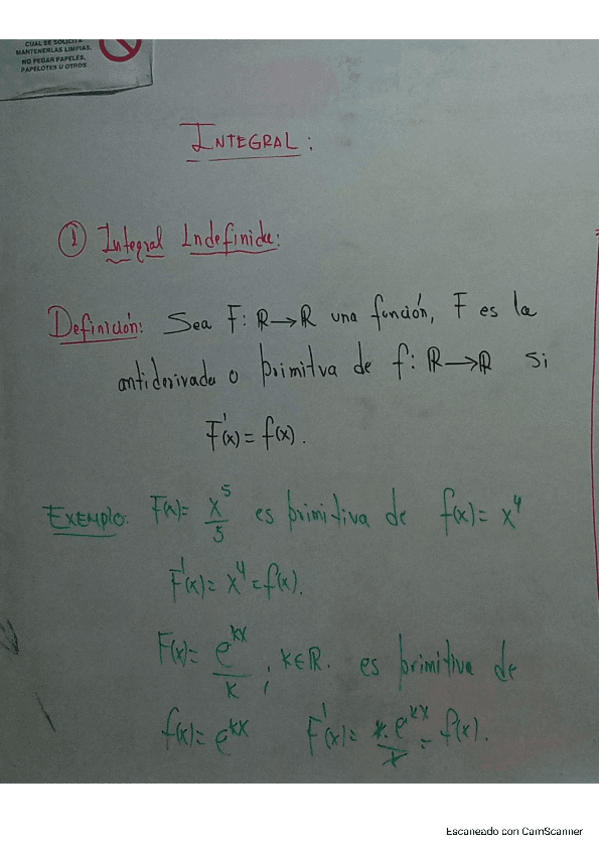 CUAL SE SOLICITA
MANTENERLAS LIMPIAS,
NO PEGAR PAPELES,
PAPELOTES U OTROS
INTEGRAL:
① Integral Indefinida:
Definición: Sea F: ℝ→ℝ una función, F es la
antiderivada o primitva de f: ℝ→ℝ si
F'(x) = f(x).
EXEMPLO: F(x) = x^5/5 es primitiva de f(x) = x^4
F'(x) = x^4 = f(x).
F(x) = e^{kx}/k, k∈ℝ. es primitiva de
f(x) = e^{kx} F'(x) = k.e^{kx}/k = f(x).
Escaneado con CamScanner